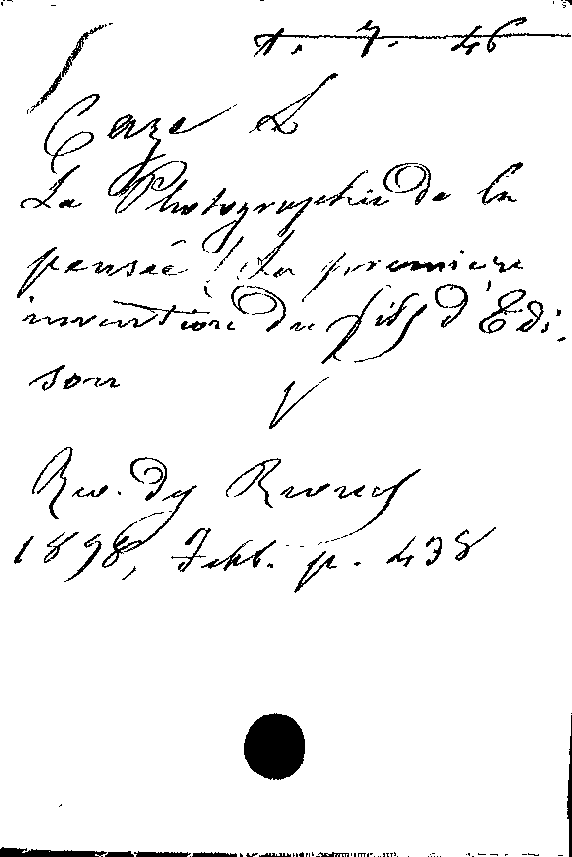 1. 7. 46
Caze L
La Photographie de la
pensée (La première
invention du fils d'Edi-
son
Rev. d. Revues
1898, Febb. p. 438